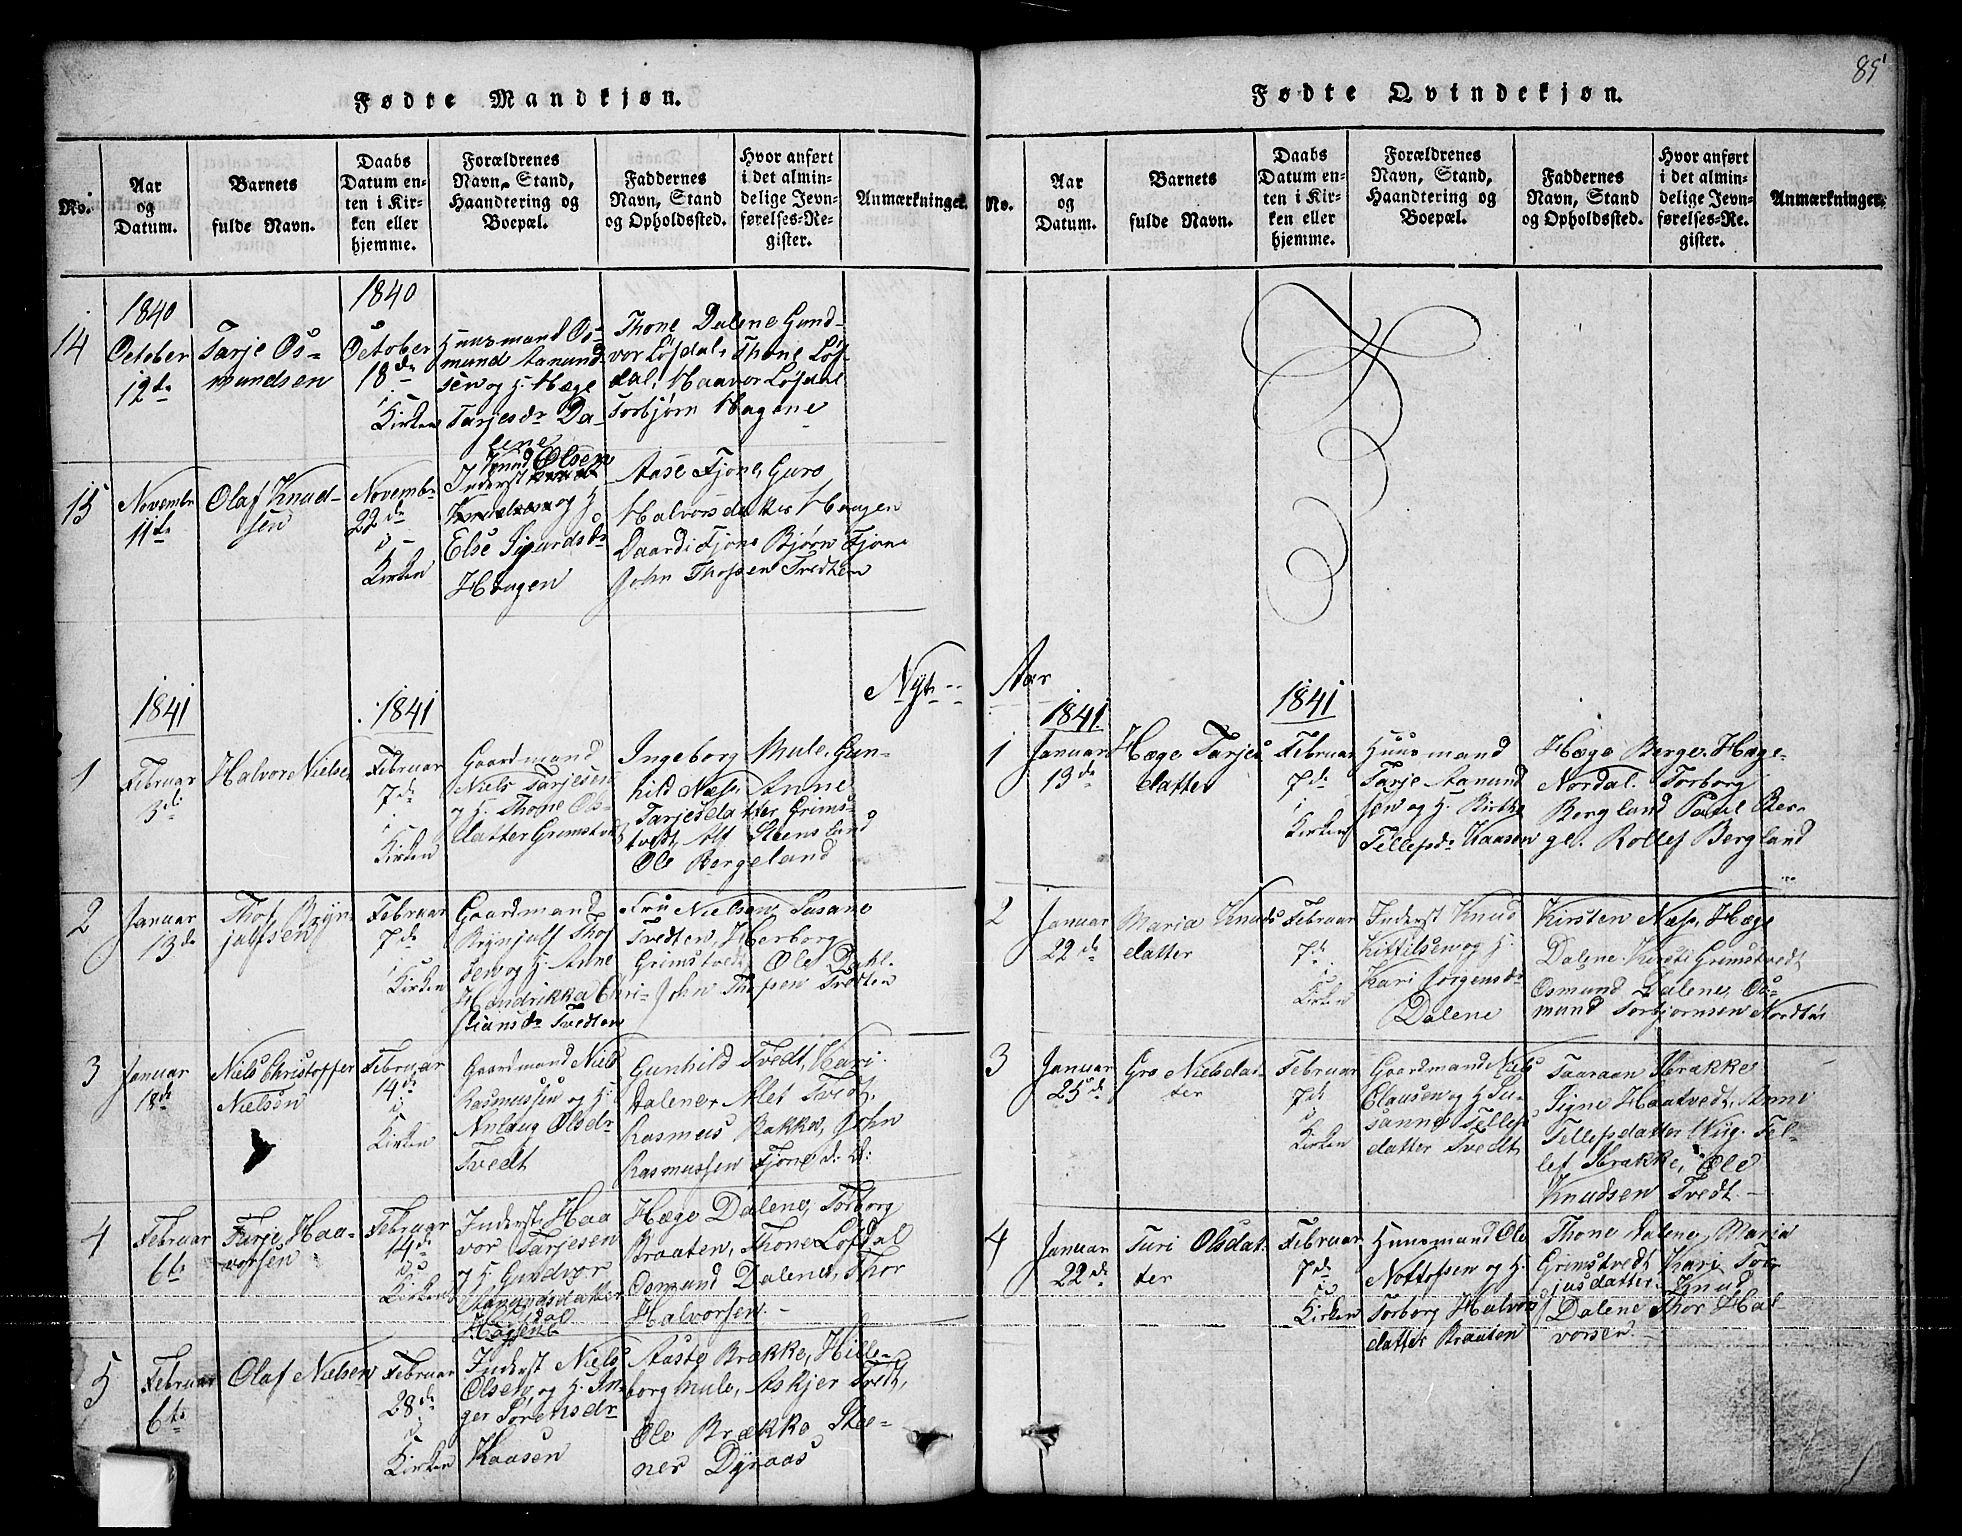 85
Fødte Mandkjøn.
No.
Aar
og
Datum.
Barnets
fulde Navn.
Daabs
Datum en-
ten i Kir-
ken eller
hjemme.
Forældrenes
Navn, Stand,
Haandtering og
Boepæl.
Faddernes
Navn, Stand
og Opholdssted.
Hvor anført
i det almin-
delige Jevn-
førelses-Re-
gister.
Anmærkninger.
14
1840
October
12te
Tarje Os-
mundsen
1840
October
18de
i
Kirken
Huusmand Os-
mund Aanund-
sen og H. Hæge
Tarjesdr Da-
lene
Thone Dalene Gund-
vor Løfdal, Thone Løf-
dal, Haavor Løfdal
Torbjørn Hagene
15
Novembr
11te
Olaf Knud-
sen
Novembr
22de
i
Kirken
Knud Olsen
Inderst
og H
Else Sigurdsdr
Haugen
Aase Fjone, Guro
Halvorsdatter Haugen
Daardi Fjone Bjørn Fjone
John Thofsen Tvedten
Nyt
1841
1841
1
Februar
3de
Halvor Nielsen
Februar
7de
i
Kirken
Gaardmand
Niels Tarjesen
og H. Thone Ols-
datter Grimstvedt
Ingeborg Mule, Gun-
hild Næs, Anne
Tarjesdatter Grims-
tvedt, Alf Steensland
Ole Bergeland
2
Januar
13de
Thof Bryn-
julfsen
Februar
7de
i
Kirken
Gaardmand
Brynjulf Thof
sen og H. Anne
Hendrikka Chri-
stiansdr Tvedten
Fru Nielsen, Susane
Tvedten, Herborg
Grimstvedt, Ole Dahl.
John Thofsen Tvedten
3
Januar
18de
Niels Christoffer
Nielsen
Februar
14de
i
Kirken
Gaardmand Niels
Rasmussen og H.
Aslaug Olsdr
Tvedt
Gunhild Tvedt, Kari
Dalene, Alet Tvedt,
Rasmus Bakka, John
Rasmussen Fjone d: d:
4
Februar
6te
Tarje Haa-
vorsen
Februar
14de
i
Kirken
Inderst Haa
vor Tarjesen
og H. Gundvor
Aanundsdatter
Løfdal
Hagene
Hæge Dalene, Torborg
Braaten, Thone Løfdal
Osmund Dalene, Thor
Halvorsen
5
Februar
6te
Olaf Nielsen
Februar
28de
i
Kirken
Inderst Niels
Olsen og H. In-
ger Sørensdr
Kaasen
Aaste Brække, Hille-
borg Mule, Askjer Tvedt,
Ole Brække Stee-
ner Dyraas
Fødte Qvindekjøn.
No.
Aar
og
Datum.
Barnets
fulde Navn.
Daabs
Datum en-
ten i Kir-
ken eller
hjemme.
Forældrenes
Navn, Stand,
Haandtering og
Boepæl.
Faddernes
Navn, Stand
og Opholdssted.
Hvor anført
i det almin-
delige Jevn-
førelses-Re-
gister.
Anmærkninger.
Aar
1841
1841
1
Januar
13de
Hæge Tarjes
datter
Februar
7de
i
Kirken
Huusmand
Tarje Aanund
sen og H. Birthe
Tellefsdr Kaasen
Hæge Berge, Hæge
Nordal. Torborg
Bergland Paul Ber-
ge. Rollef Bergland
2
Januar
22de
Maria Knuds
datter
Februar
7de
i
Kirken
Inderst Knud
Kittilsen og H.
Kari Jørgensdr
Dalene
Kirsten Næs, Hæge
Dalene, Kirsti Grimstvedt
Osmund Dalene, Os-
mund Torbjørnsen Nordbø
3
Januar
25de
Gro Nielsdat-
ter
Februar
7de
i
Kirken
Gaardmand Niels
Clausen og H. Su-
sanne Tellefs
datter Tvedt
Taaraan Brække
Signe Haatvedt, Anne
Tellefsdatter Tel-
lef Brække, Ole
Knudsen Tvedt.
4
Januar
22de
Turi Olsdat-
ter
Februar
7de
i
Kirken
Huusmand Ole
Nottofsen og H.
Torborg Halvors
datter Braaten
Thone Dalene, Maria
Grimstvedt Kari Tor-
jusdatter Knud
Dalene Thor Hal-
vorsen